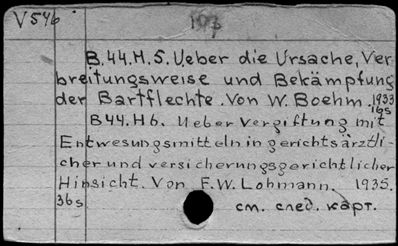 V546
193
B.44.H.5. Ueber die Ursache, Ver-
breitungsweise und Bekämpfung
der Bartflechte. Von W. Boehm. 1933
16s
B44.H6. Ueber Vergiftung mit
Entwesungsmitteln in gerichtsärztli-
cher und versicherungsgerichtlicher
Hinsicht. Von F.W. Lohmann. 1935.
36s
см. след. карт.